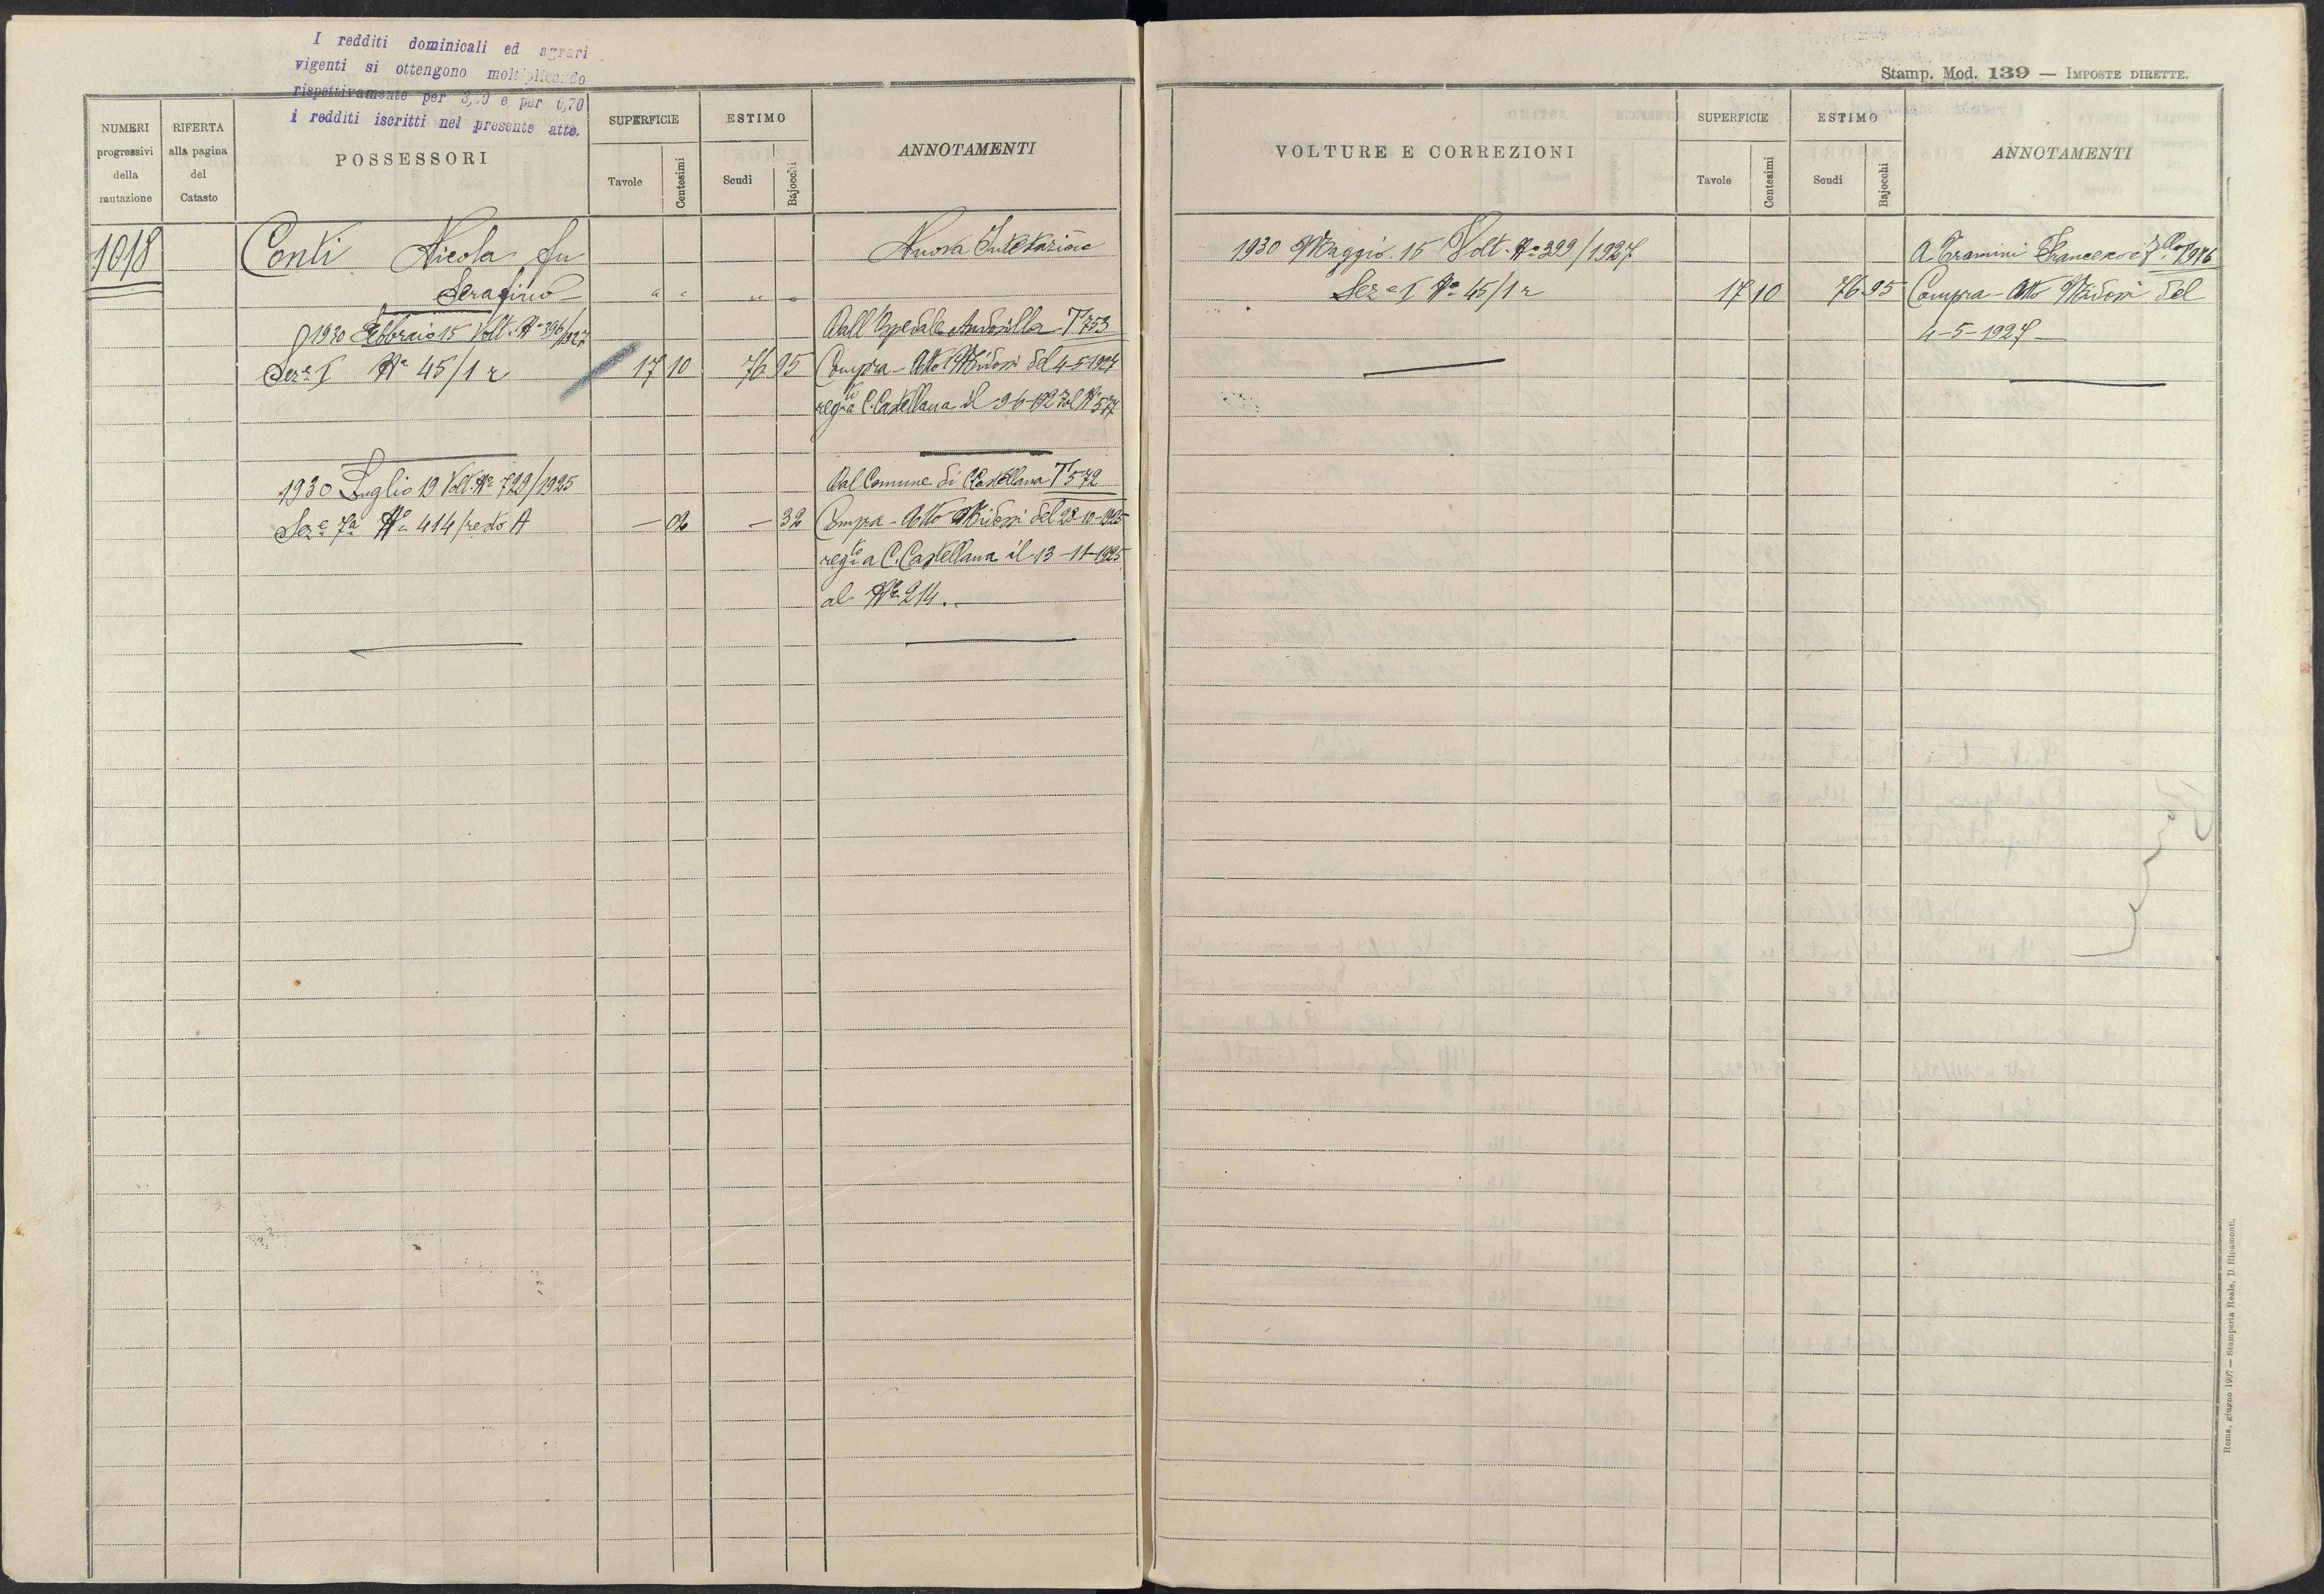 I redditi dominicali ed agrari
vigenti si ottengono moltiplicando
rispettivamente per 3,50 e per 0,70
i redditi iscritti nel presente atto.
NUMERI
progressivi
della
mutazione
RIFERTA
alla pagina
del
Catasto
POSSESSORI
SUPERFICIE
Tavole
Centesimi
ESTIMO
Scudi
Bajocchi
ANNOTAMENTI
1018
Conti Nicola fu
Serafino
Nuova Intestazione
1930 Febbraio 15 Volt. No 396/927
Dall'Ospedale Andosilla T 753
Sez. I No 45/1 r 17 10 76 95 Compra - Atto Midossi del 4-5-1927
reg.to a C. Castellana il No 577
1930 Luglio 19 Volt. No 729/1925
Dal Comune di C. Castellana T 572
Sez. 7a No 414/resto A — 02 — 32 Compra - Atto Midossi del 28-10-1925
reg.to a C. Castellana il 13-11-1925
al No 214.
Stamp. Mod. 139 — IMPOSTE DIRETTE.
VOLTURE E CORREZIONI
SUPERFICIE
Tavole
Centesimi
ESTIMO
Scudi
Bajocchi
ANNOTAMENTI
1930 Maggio 15 Volt. No 399/1927
A Francesco
Sez. I No 45/1 r 17 10 76 95 Compra - Atto Midossi del
4-5-1927
Roma, giugno 1907 — Stamperia Reale, D. Ripamonti.